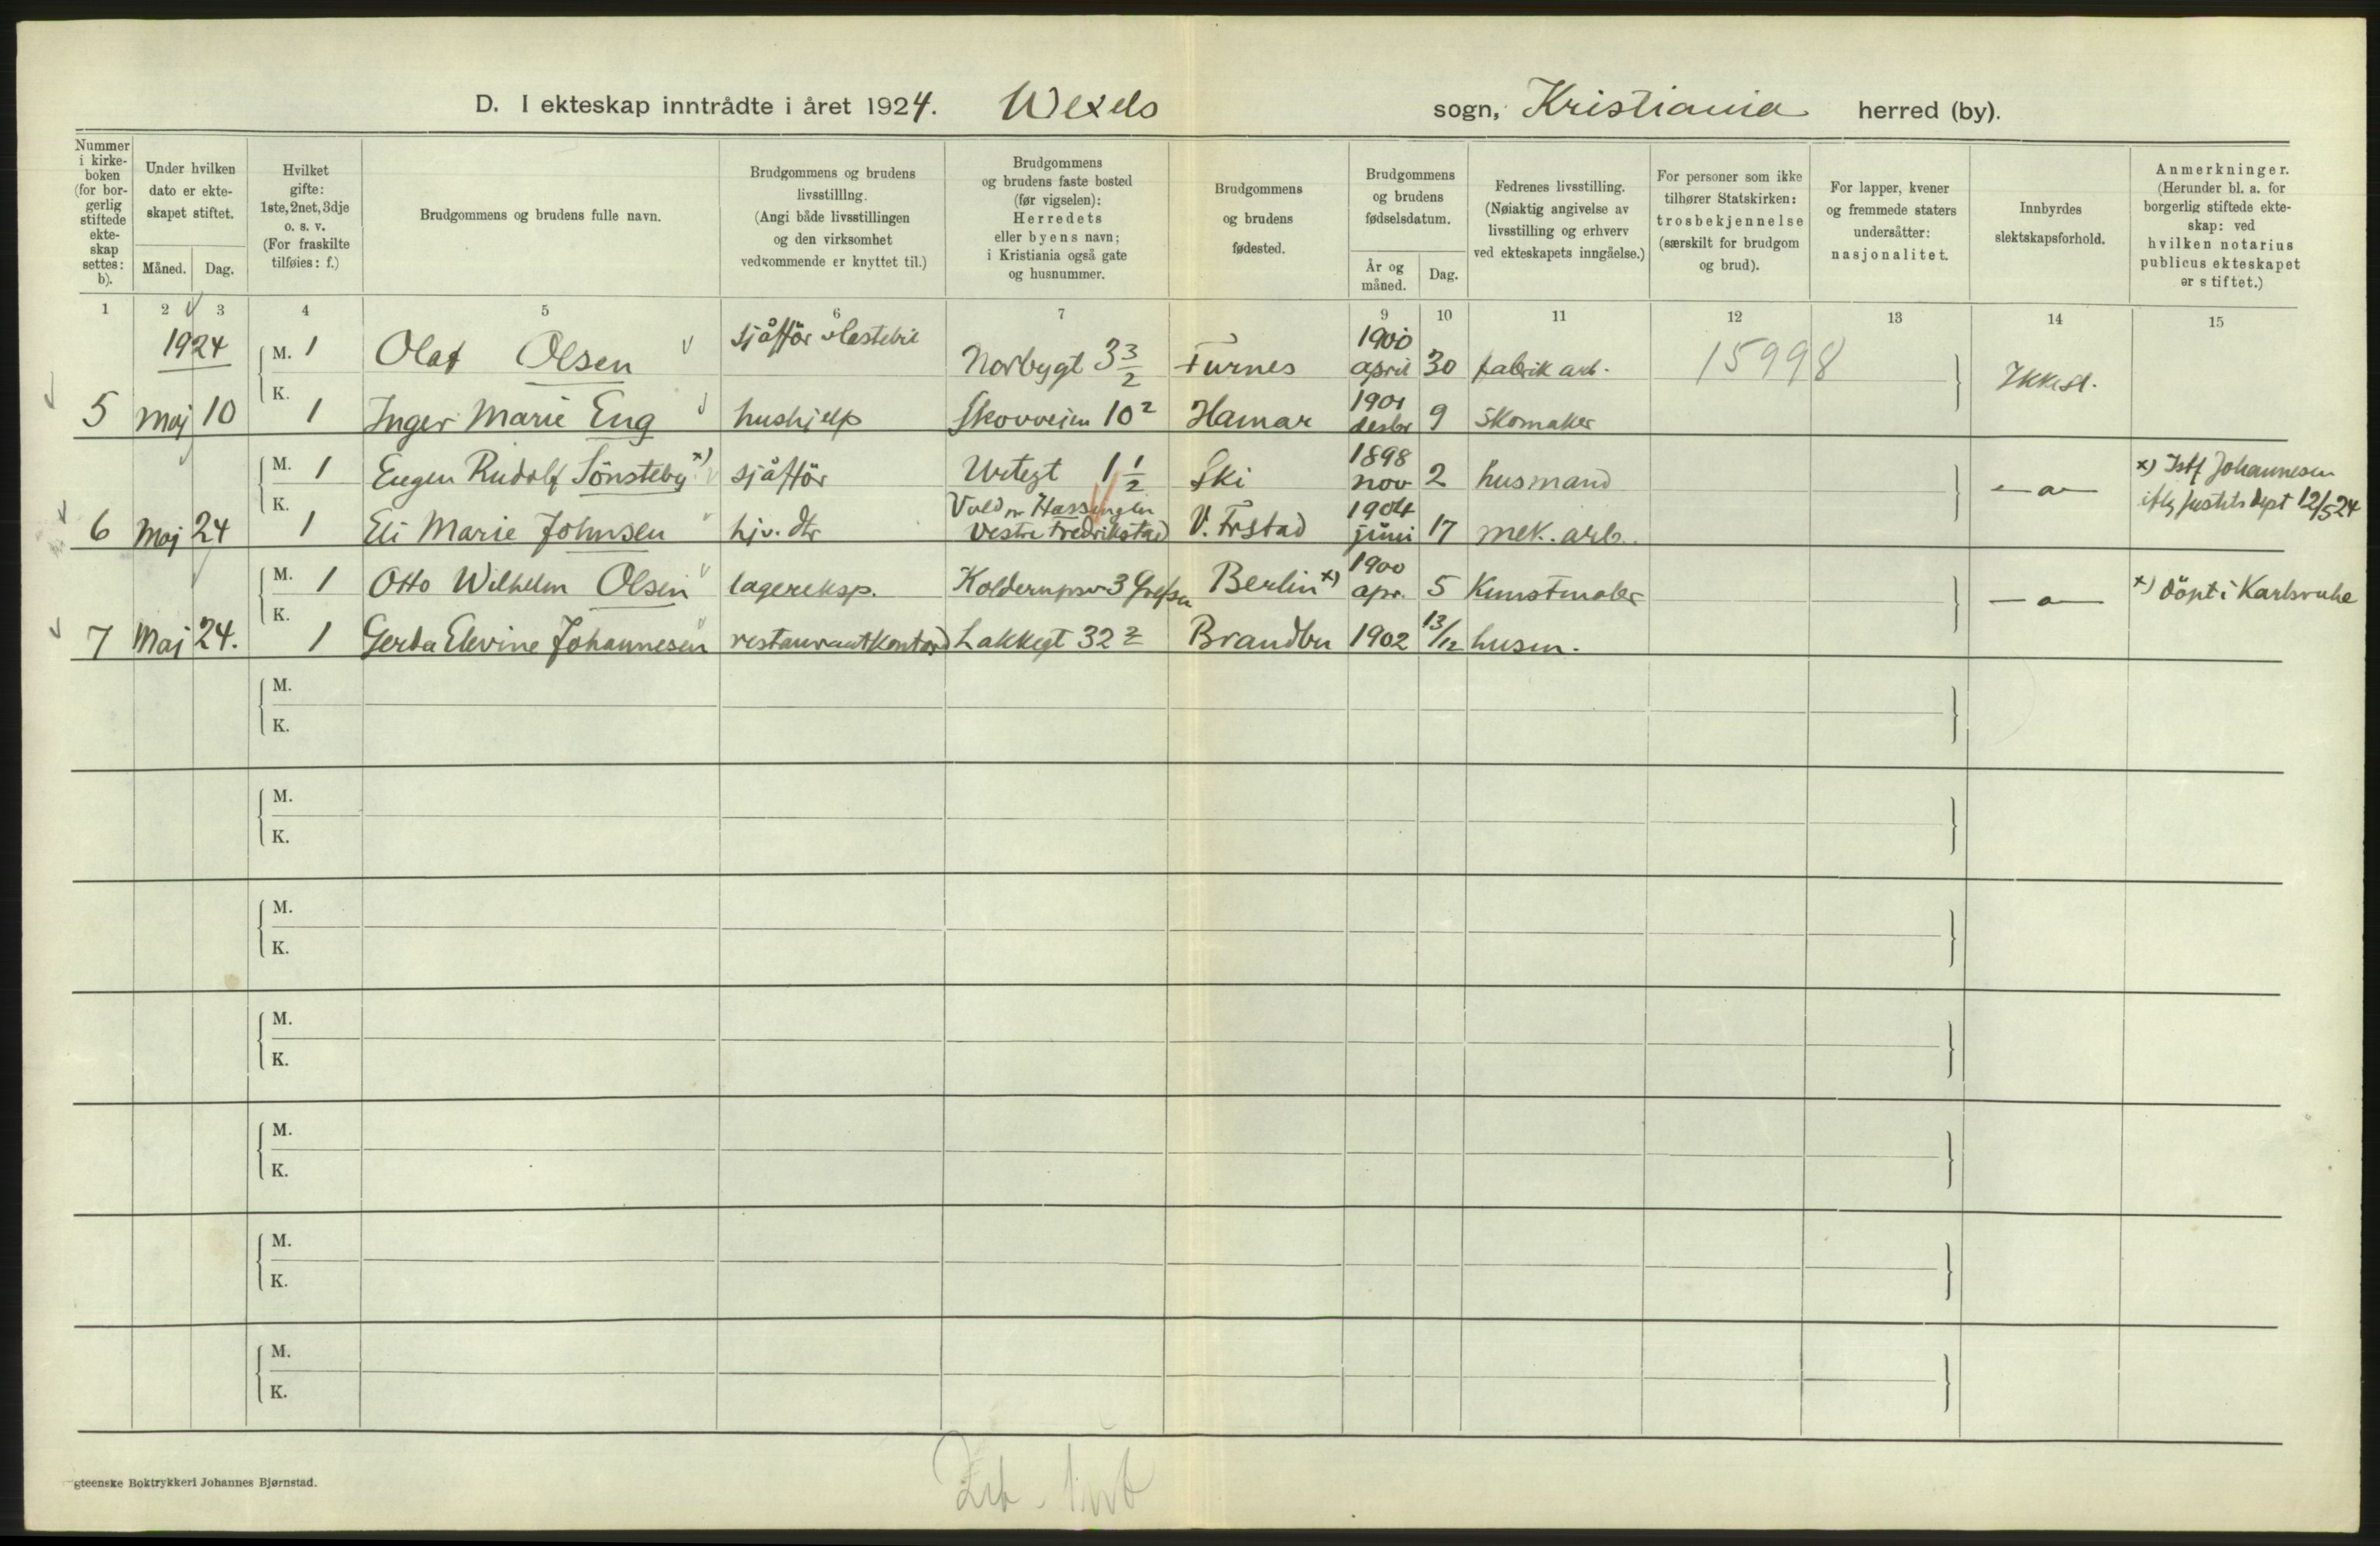 D. I ekteskap inntrådte i året 1924. Wexels sogn, Kristiania herred (by).
Nummer i kirkeboken (for borgerlig stiftede ekteskap settes: b).
Under hvilken dato er ekteskapet stiftet.
Måned. Dag.
Hvilket gifte: 1ste, 2net, 3dje o. s. v. (For fraskilte tilføies: f.)
Brudgommens og brudens fulle navn.
Brudgommens og brudens livsstilllng. (Angi både livsstillingen og den virksomhet vedkommende er knyttet til.)
Brudgommens og brudens faste bosted (før vigselen): Herredets eller byens navn; i Kristiania også gate og husnummer.
Brudgommens og brudens fødested.
Brudgommens og brudens fødselsdatum.
År og måned. Dag.
Fedrenes livsstilling. (Nøiaktig angivelse av livsstilling og erhverv ved ekteskapets inngåelse.)
For personer som ikke tilhører Statskirken: trosbekjennelse (særskilt for brudgom og brud).
For lapper, kvener og fremmede staters undersåtter: nasjonalitet.
Innbyrdes slektskapsforhold.
Anmerkninger. (Herunder bl. a. for borgerlig stiftede ekteskap: ved hvilken notarius publicus ekteskapet er stiftet.)
1 2 3 4 5 6 7 9 10 11 12 13 14 15
1924 M. 1 Olaf Olsen sjåfför Norbygt 3 3/2 Furnes 1900 april 30 fabrik arb. 15998
K.
5 Maj 10 1 Inger Marie Eng hushjelp Skovveien 10² Hamar 1901 desbr 9 skomaker Ikke sl.
M. 1 Eugen Rudolf Sönsteby x) sjåfför Urtegt 1 1/2 Ski 1898 nov 2 husmand x) Istf Johannesen
K.
6 Maj 24 1 Eli Marie Johnsen hjv. dtr Vold pr Hassingen Vestre Fredrikstad V. Frstad 1904 juni 17 mek. arb. — a — iflg justits dept 12/5 24
M. 1 Otto Wilhelm Olsen lagereksp. Kolderupsv 3 Grefsen Berlin x) 1900 apr. 5 Kunstmaler — a — x) döpt i Karlsruhe
K.
7 Maj 24. 1 Gerda Elevine Johannesen Lakkegt 32 Brandbu 1902 13/12 husm.
M.
K.
M.
K.
M.
K.
M.
K.
M.
K.
M.
K.
M.
K.
gteenske Boktrykkeri Johannes Bjørnstad.